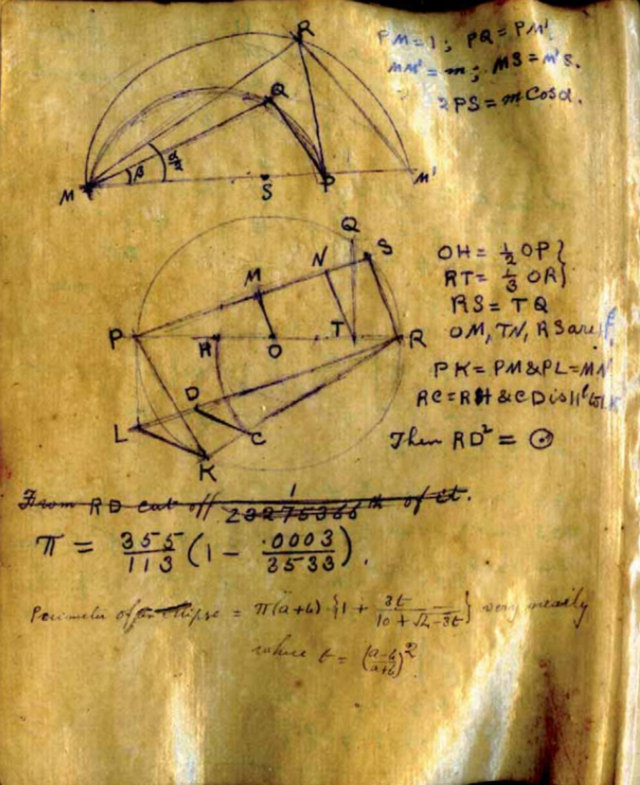 PM=1; PQ=PM'.
MM'=m; MS=M'S.
2PS=m Cosα.
R
Q
β
α/2
M
S
P
M'
Q
S
N
M
P
H
O
T
R
D
L
C
K
OH = 1/2 OP}
RT = 1/3 OR}
RS = TQ
OM, TN, RS are
PK = PM & PL = MN
RC = RH & CD is ll
Then RD² = ⊙
From RD cut off 1/23275366 th of it.
π = 355/113 (1 - .0003/3533).
Perimeter of an ellipse = π(a+b) {1 + 3t/(10+√(4-3t))} very nearly
where t = ((a-b)/(a+b))²